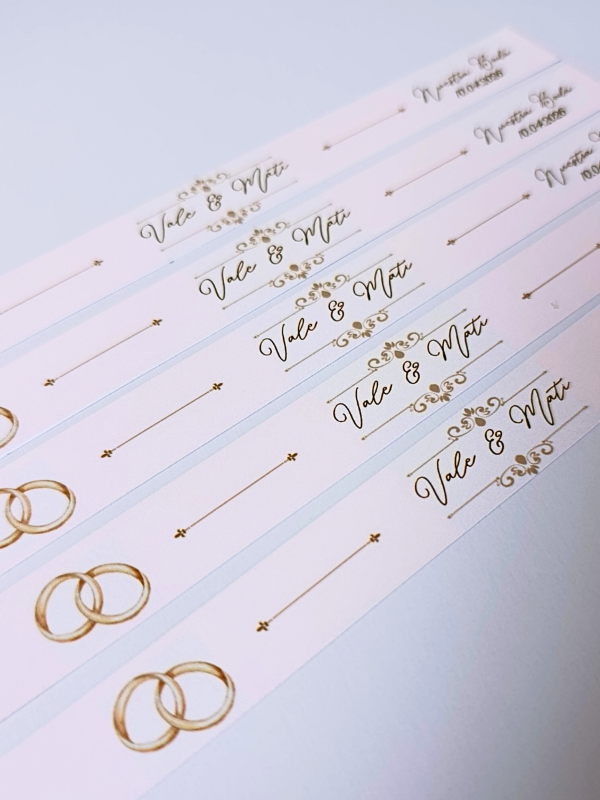 Vale & Mati
Nuestra Boda
10.04.2026
Vale & Mati
Nuestra Boda
10.04.2026
Vale & Mati
Nuestra
Vale & Mati
Vale & Mati